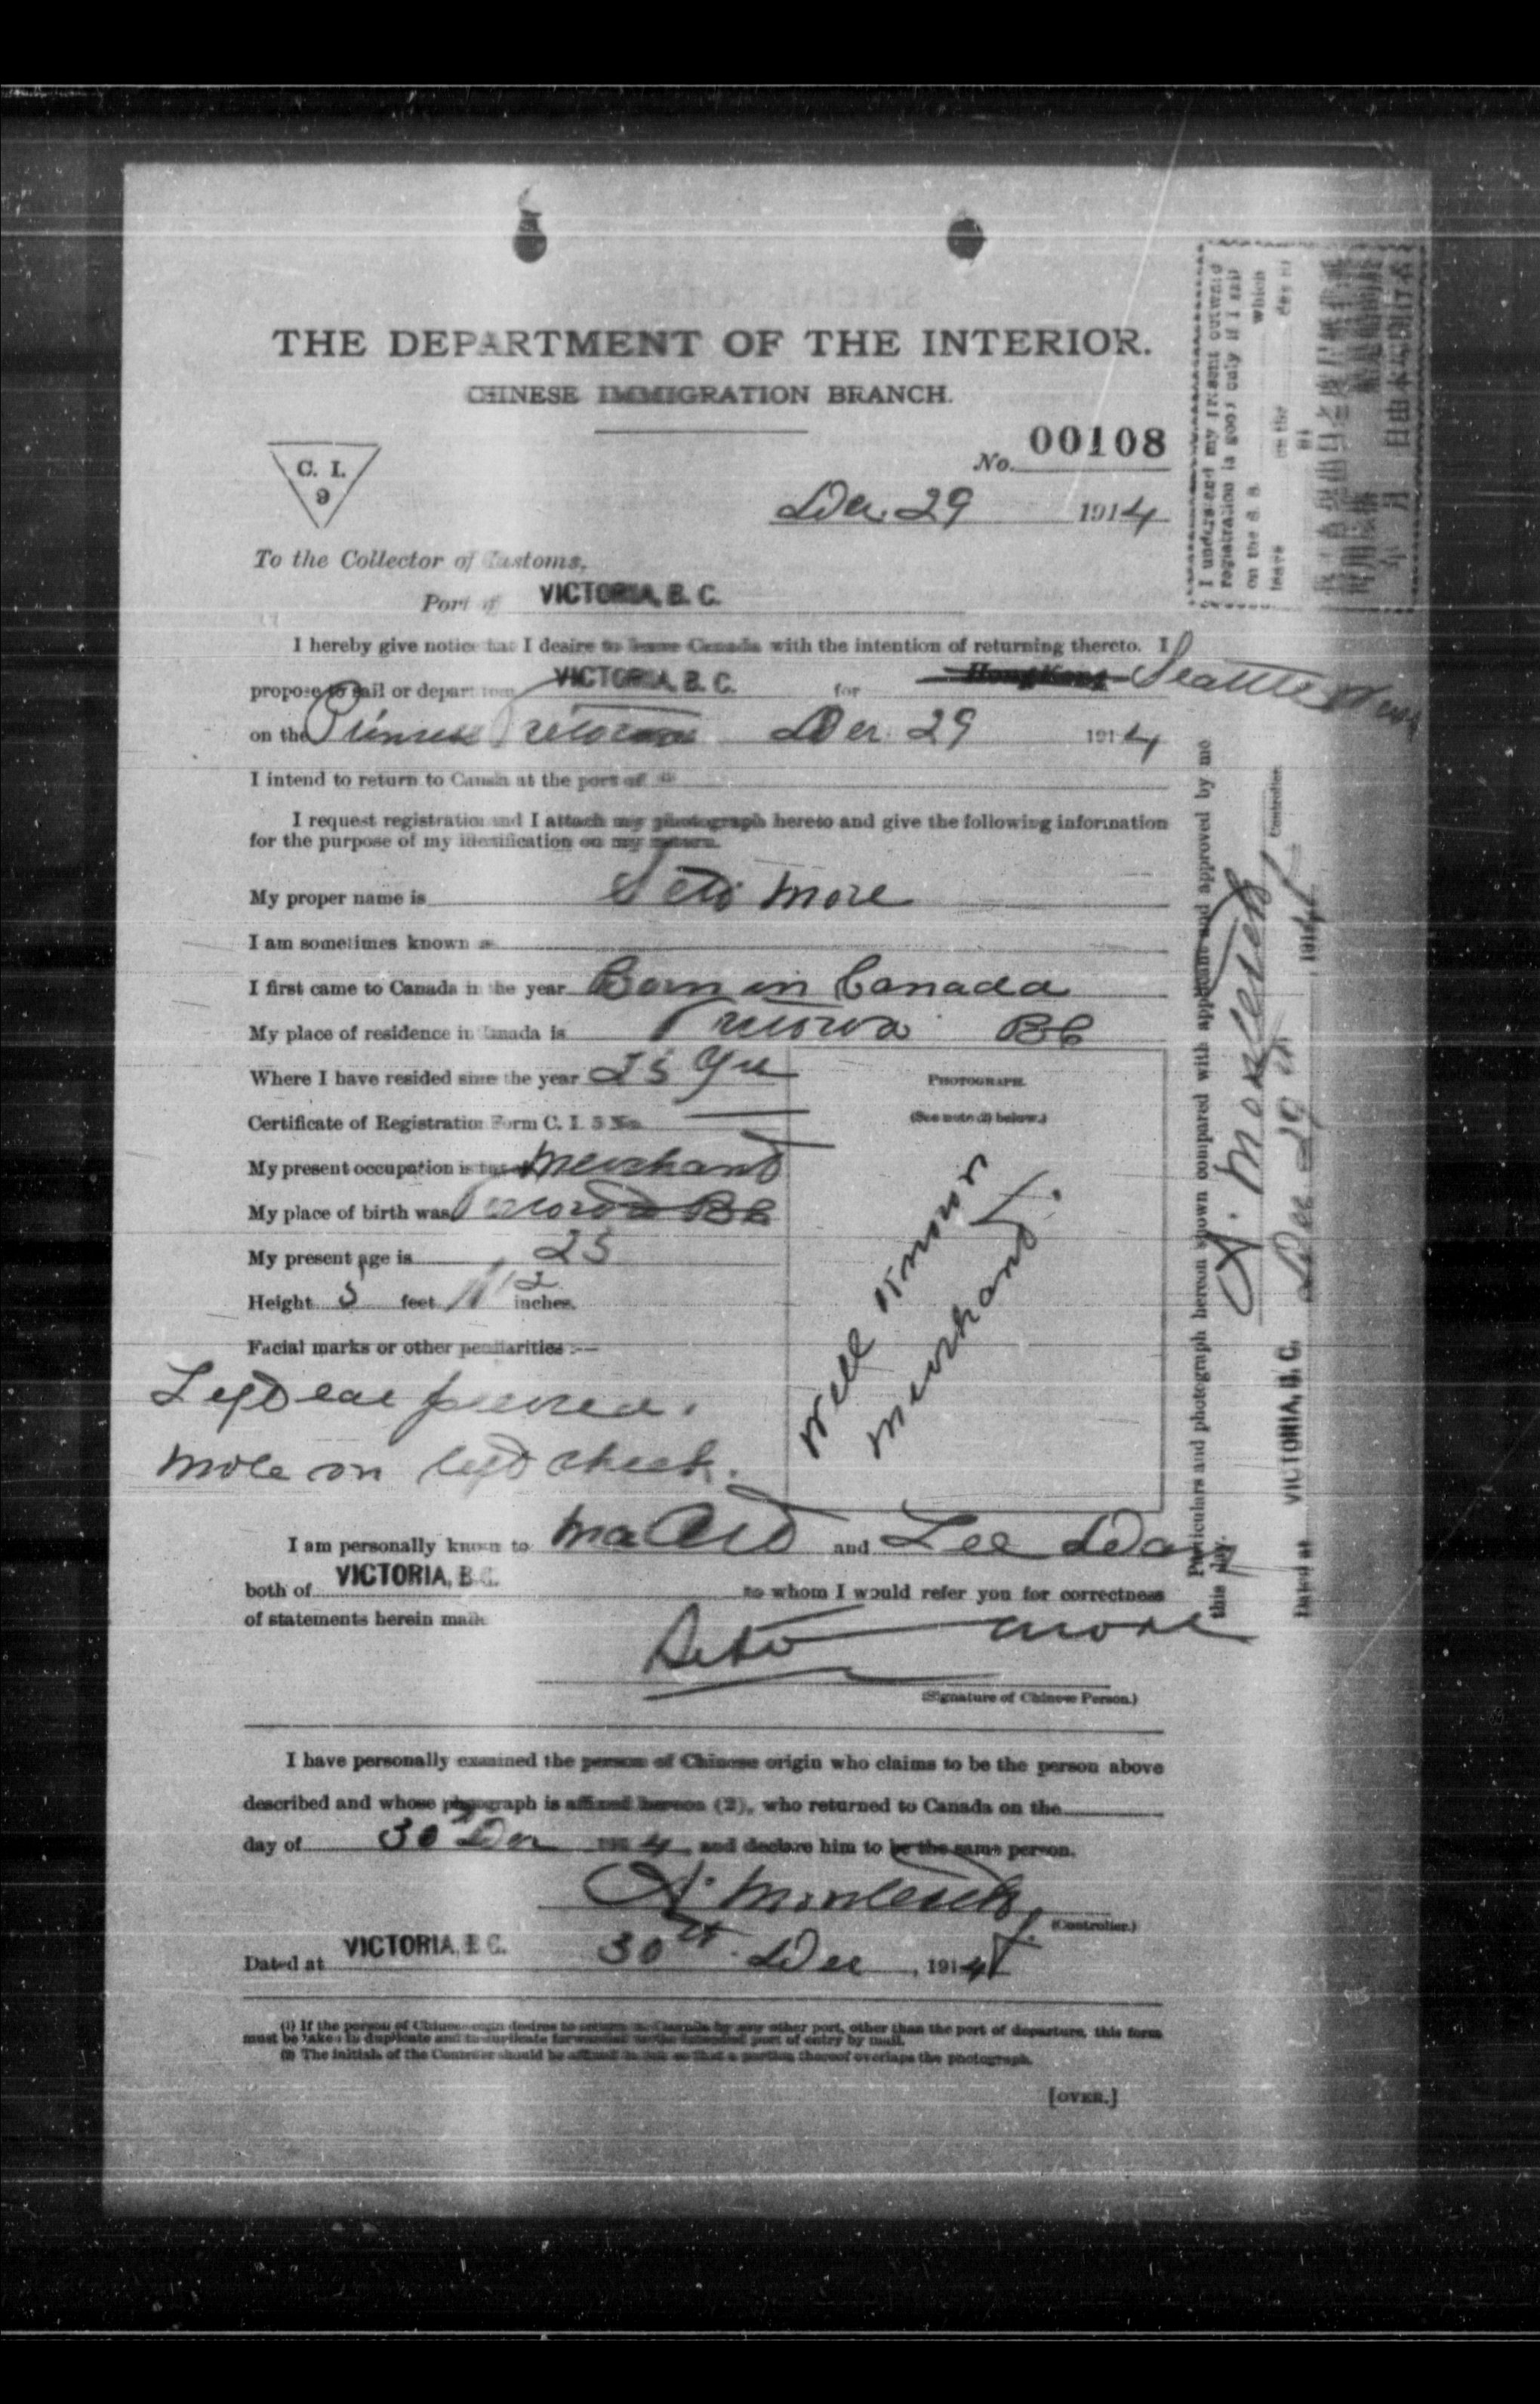 THE DEPARTMENT OF THE INTERIOR.
CHINESE IMMIGRATION BRANCH.
C. I.
9
No. 00108
Dec. 29 1914
To the Collector of Customs,
Port of VICTORIA, B. C.
I hereby give notice that I desire to leave Canada with the intention of returning thereto. I
propose to sail or depart from VICTORIA, B. C. for HongKong Seattle
on the Princess Victoria Dec. 29 1914
I intend to return to Canada at the port of
I request registration and I attach my photograph hereto and give the following information
for the purpose of my identification on my return.
My proper name is Seto More
I am sometimes known as
I first came to Canada in the year Born in Canada
My place of residence in Canada is Victoria BC
Where I have resided since the year 25 Yrs
Certificate of Registration Form C. I. 5 No.
My present occupation is that of Merchant
My place of birth was Victoria BC
My present age is 25
Height 5 feet inches.
Facial marks or other peculiarities :—
Left ear pierced.
Mole on left cheek.
PHOTOGRAPH.
(See note (2) below.)
Well Known
Merchant.
I am personally known to and Lee
both of VICTORIA, B.C. to whom I would refer you for correctness
of statements herein made.
Seto more
(Signature of Chinese Person.)
I have personally examined the person of Chinese origin who claims to be the person above
described and whose photograph is affixed hereon (2), who returned to Canada on the
day of 30th Dec 1914, and declare him to be the same person.
(Controller.)
Dated at VICTORIA, B C. 30th Dec, 1914
(1) If the person of Chinese origin desires to return to Canada by any other port, other than the port of departure, this form
must be taken in duplicate and duplicate forwarded to the intended port of entry by mail.
(2) The initials of the Controller should be affixed in ink so that a portion thereof overlaps the photograph.
[OVER.]
Particulars and photograph hereon shown compared with applicant and approved by me
this day.
Controller.
Dated at VICTORIA, B. C. Dec 29th, 1914
I understand my present outward
registration is good only if I sail
on the S. S. which
leave on the day of